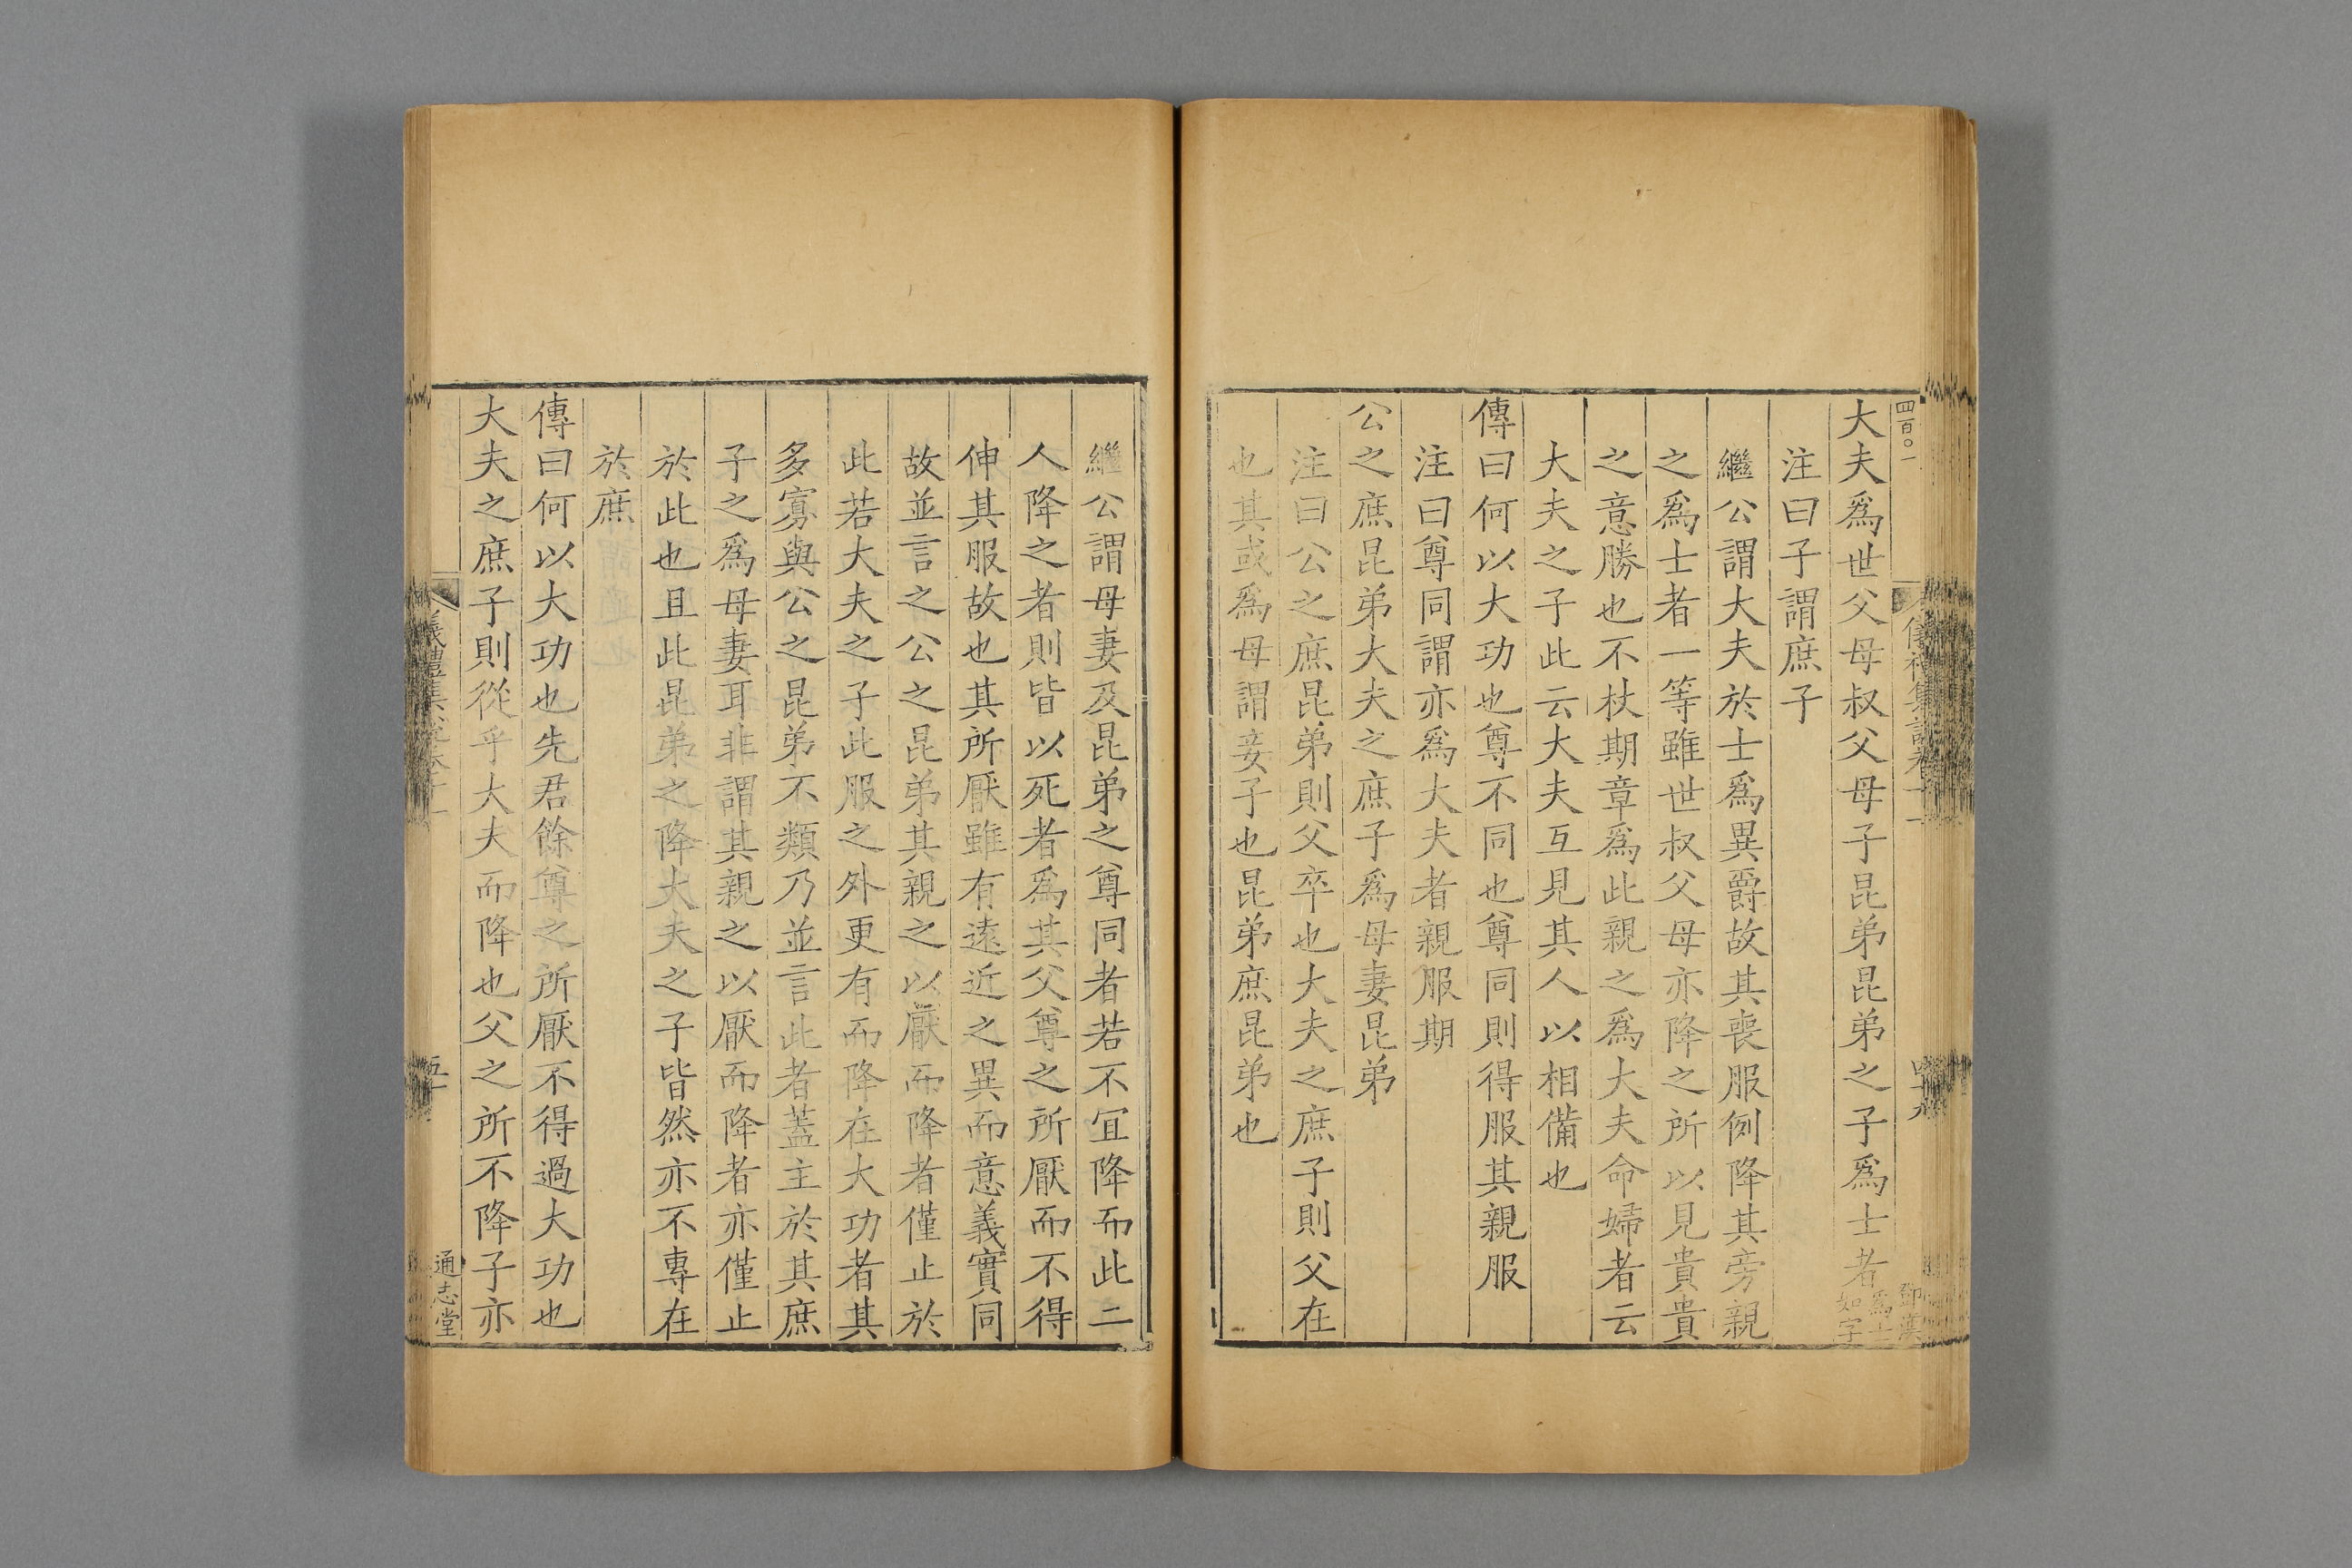 四百〇一
大夫爲世父母叔父母子昆弟昆弟之子爲士者爲士如字
注曰子謂庶子
繼公謂大夫於士爲異爵故其喪服例降其旁親
之爲士者一等雖世叔父母亦降之所以見貴貴
之意勝也不杖期章爲此親之爲大夫命婦者云
大夫之子此云大夫互見其人以相備也
傳曰何以大功也尊不同也尊同則得服其親服
注曰尊同謂亦爲大夫者親服期
公之庶昆弟大夫之庶子爲母妻昆弟
注曰公之庶昆弟則父卒也大夫之庶子則父在
也其或爲母謂妾子也昆弟庶昆弟也
繼公謂母妻及昆弟之尊同者若不宜降而此二
人降之者則皆以死者爲其父尊之所厭而不得
伸其服故也其所厭雖有遠近之異而意義實同
故並言之公之昆弟其親之以厭而降者僅止於
此若大夫之子此服之外更有而降在大功者其
多寡與公之昆弟不類乃並言此者蓋主於其庶
子之爲母妻耳非謂其親之以厭而降者亦僅止
於此也且此昆弟之降大夫之子皆然亦不專在
於庶
傳曰何以大功也先君餘尊之所厭不得過大功也
大夫之庶子則從乎大夫而降也父之所不降子亦
儀禮集說卷十一
五十
通志堂